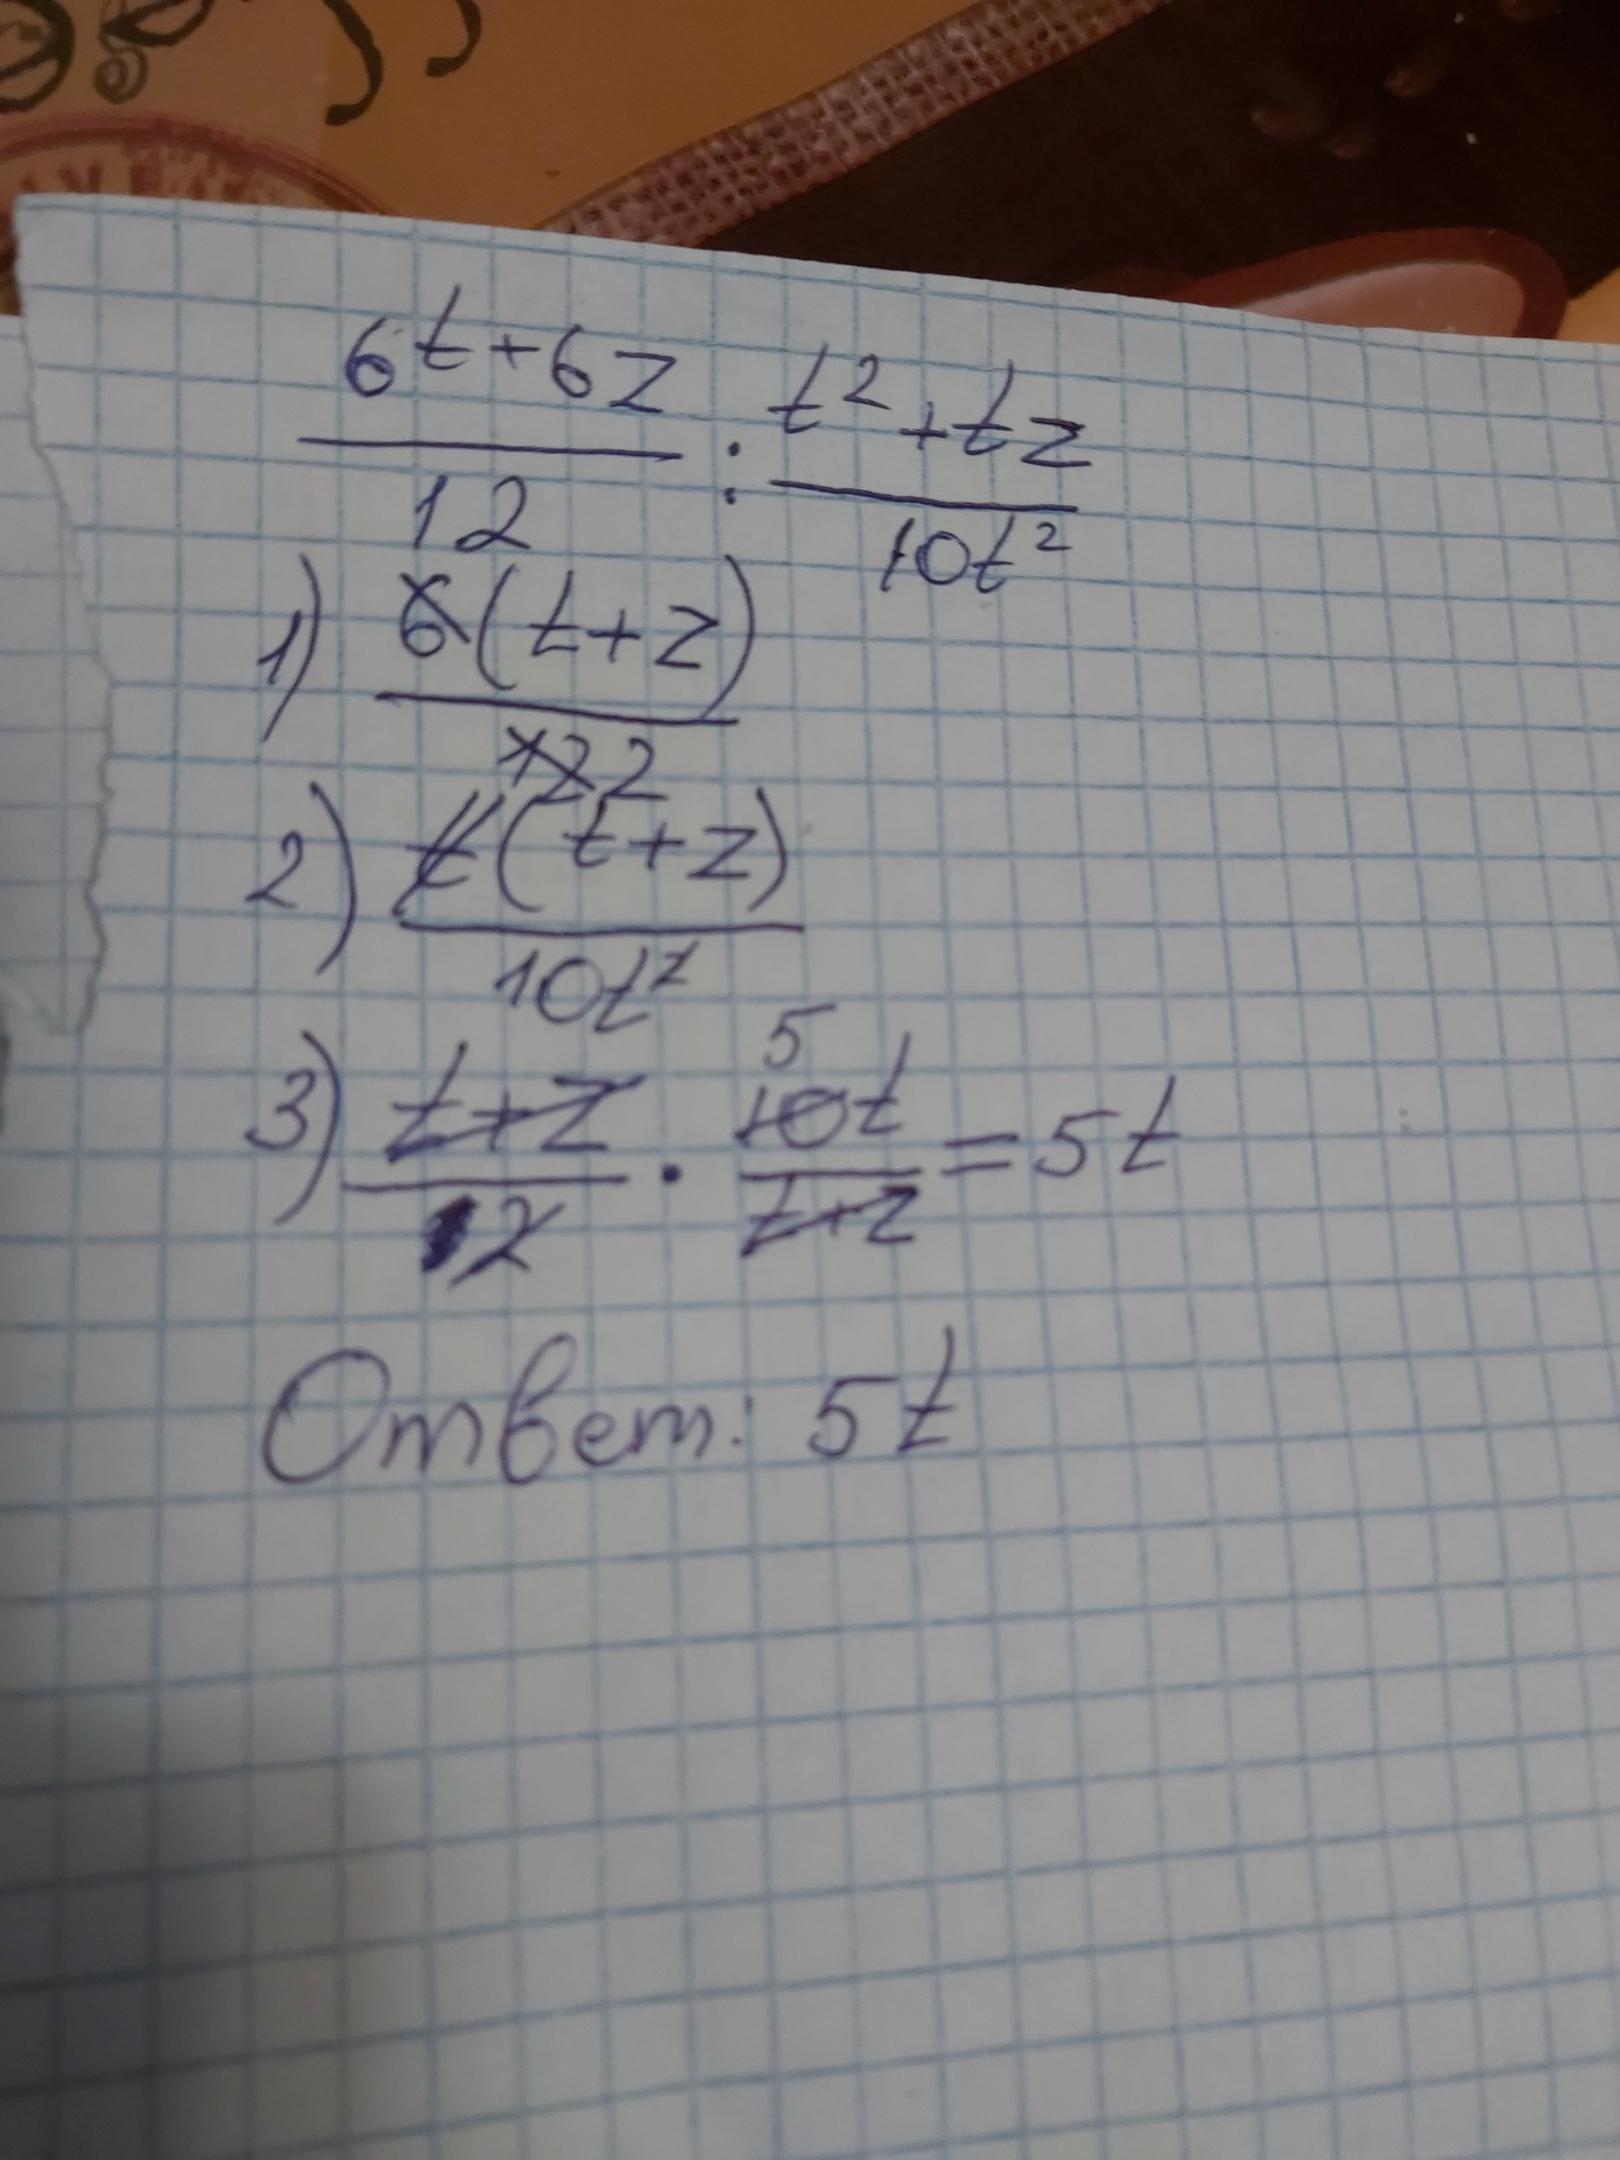 6t+6z / 12 : t²+tz / 10t²
1) 6(t+z) / 12 2
2) t(t+z) / 10t²
3) t+z / 2 · 5 10t / t+z = 5t
Ответ: 5t